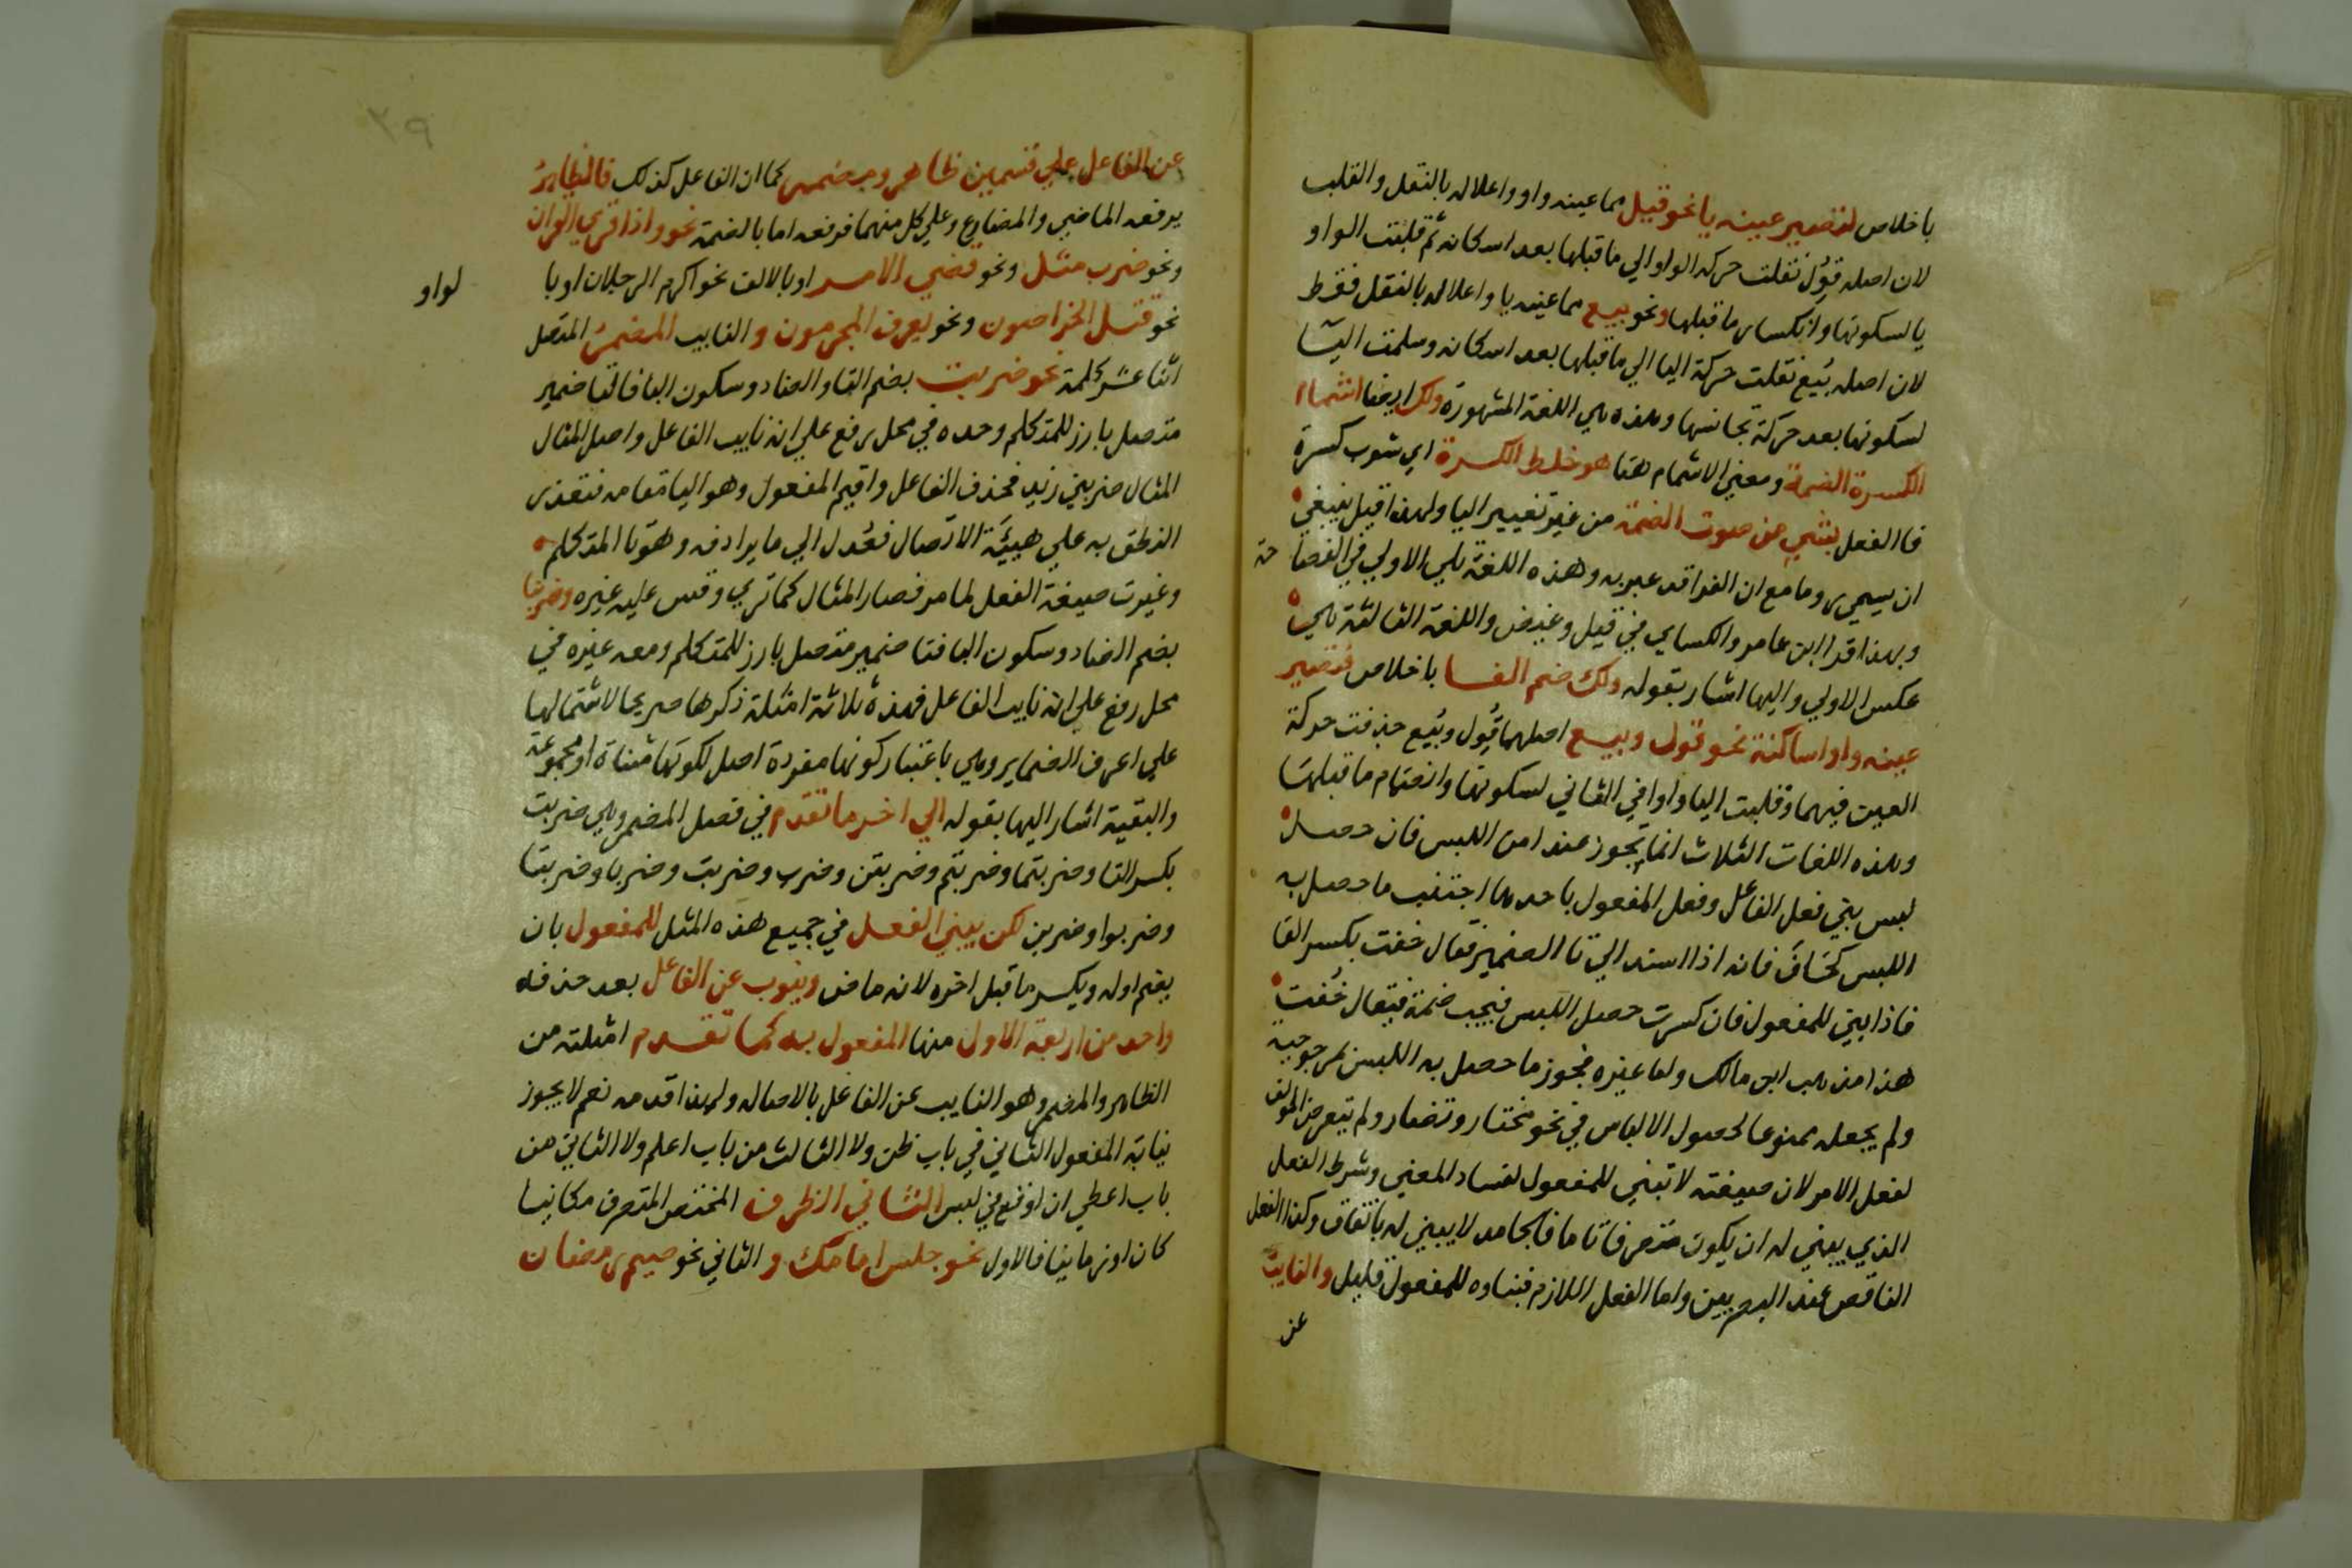 باخلاص لتصير عينه يا نحو قيل مما عينه واو واعلاله بالنقل والقلب
لان اصله قوُل نقلت حركه الواو الي ما قبلها بعد اسكانه ثم قلبت الواو
يا لسكونها وانكسار ما قبلها ونحو بيع مما عينه يا واعلاله بالنقل فقط
لان اصله بُيع نقلت حركة اليا الي ما قبلها بعد اسكانه وسلمت اليا
لسكونها بعد حركة تجانسها وهذه هي اللغة المشهورة ولك ايضا اشمام
الكسرة الضمة ومعني الاشمام هنا هو خلط الكسرة اي شوب كسرة
فا الفعل بشي من صوت الضمة من غير تغيير اليا ولهذا قيل ينبغي
ان يسمي روما مع ان الفرا قد عبر به وهذه اللغة تلي الاولي في الفصاحة
وبهذا قرا ابن عامر والكساي في قيل وغيض واللغة الثالثة هي
عكس الاولي واليها اشار بقوله ولك ضم الفا باخلاص فتصير
عينه واوا ساكنة نحو قول وبوع اصلهما قُول وبُيع حذفت حركة
العين فيهما وقلبت اليا واوا في الثاني لسكونها وانضمام ما قبلها
وهذه اللغات الثلاث انما تجوز عند امن اللبس فان حصل
لبس بين فعل الفاعل وفعل المفعول باحدها اجتنب ما حصل به
اللبس كخاف فانه اذا اسند الي تا الضمير تقال خفت بكسر الفا
فاذا بني للمفعول فان كسرت حصل اللبس فيجب ضمه فيقال خُفت
هذا مذهب ابن مالك واما غيره فجوز ما حصل به اللبس بمرجوحيه
ولم يجعله ممنوعا لحصول الالباس في نحو مختار وتضار ولم يتعرض المولف
لفعل الامر لان صيغته لا تبني للمفعول لفساد المعني وشرط الفعل
الذي يبني له ان يكون متصرفا تاما فالجامد لا يبني له باتفاق وكذا الفعل
الناقص عند البصريين واما الفعل اللازم فبناوه للمفعول قليل والنايب
عن
٣٩
عن الفاعل علي قسمين ظاهر ومضمر كما ان الفاعل كذلك فالظاهر
يرفعه الماضي والمضارع وعلي كل منهما فرفعه اما بالضمة نحو واذا قري القران
ونحو ضرب مثل ونحو قضي الامر او بالالف نحو اكرم الرجلان او با
لواو
نحو قتل الخراصون ونحو يعرف المجرمون والنايب المضمر المتصل
اثنا عشر كلمة نحو ضربت بضم التا والضاد وسكون البا فالتا ضمير
متصل بارز للمتكلم وحده في محل رفع علي انه نايب الفاعل واصل المثال
المثال ضربني زيد فحذف الفاعل واقيم المفعول وهو اليا مقامه فتعذر
النطق به علي هيئة الاتصال فعُدل الي ما يرادفه وهو تا المتكلم
وغيرت صيغة الفعل لما مر فصار المثال كما تري وقس عليه غيره وضربنا
بضم الضاد وسكون البا فنا ضمير متصل بارز للمتكلم ومعه غيره في
محل رفع علي انه نايب الفاعل فهذه ثلاثة امثلة ذكرها صريحا لاشتمالها
علي اعرف الضماير وهي باعتبار كونها مفردة اصل لكونها مثناة او مجموعة
والبقية اشار اليها بقوله الي اخر ما تقدم في فصل المضمر وهي ضربت
بكسر التا وضربتما وضربتم وضربتن وضرب وضربت وضربا وضربتا
وضربوا وضربن لكن يبني الفعل في جميع هذه المثل للمفعول بان
يضم اوله ويكسر ما قبل اخره لانه ماض وينوب عن الفاعل بعد حذفه
واحد من اربعة الاول منها المفعول به كما تقدم امثلته من
الظاهر والمضمر وهو النايب عن الفاعل بالاصاله ولهذا قدمه نعم لا يجوز
نيابة المفعول الثاني في باب ظن ولا الثالث من باب اعلم ولا الثاني من
باب اعطي ان اوقع في لبس الثاني الظرف المختص المتصرف مكانيا
كان او زمانيا فالاول نحو جلس امامك والثاني نحو صيم رمضان